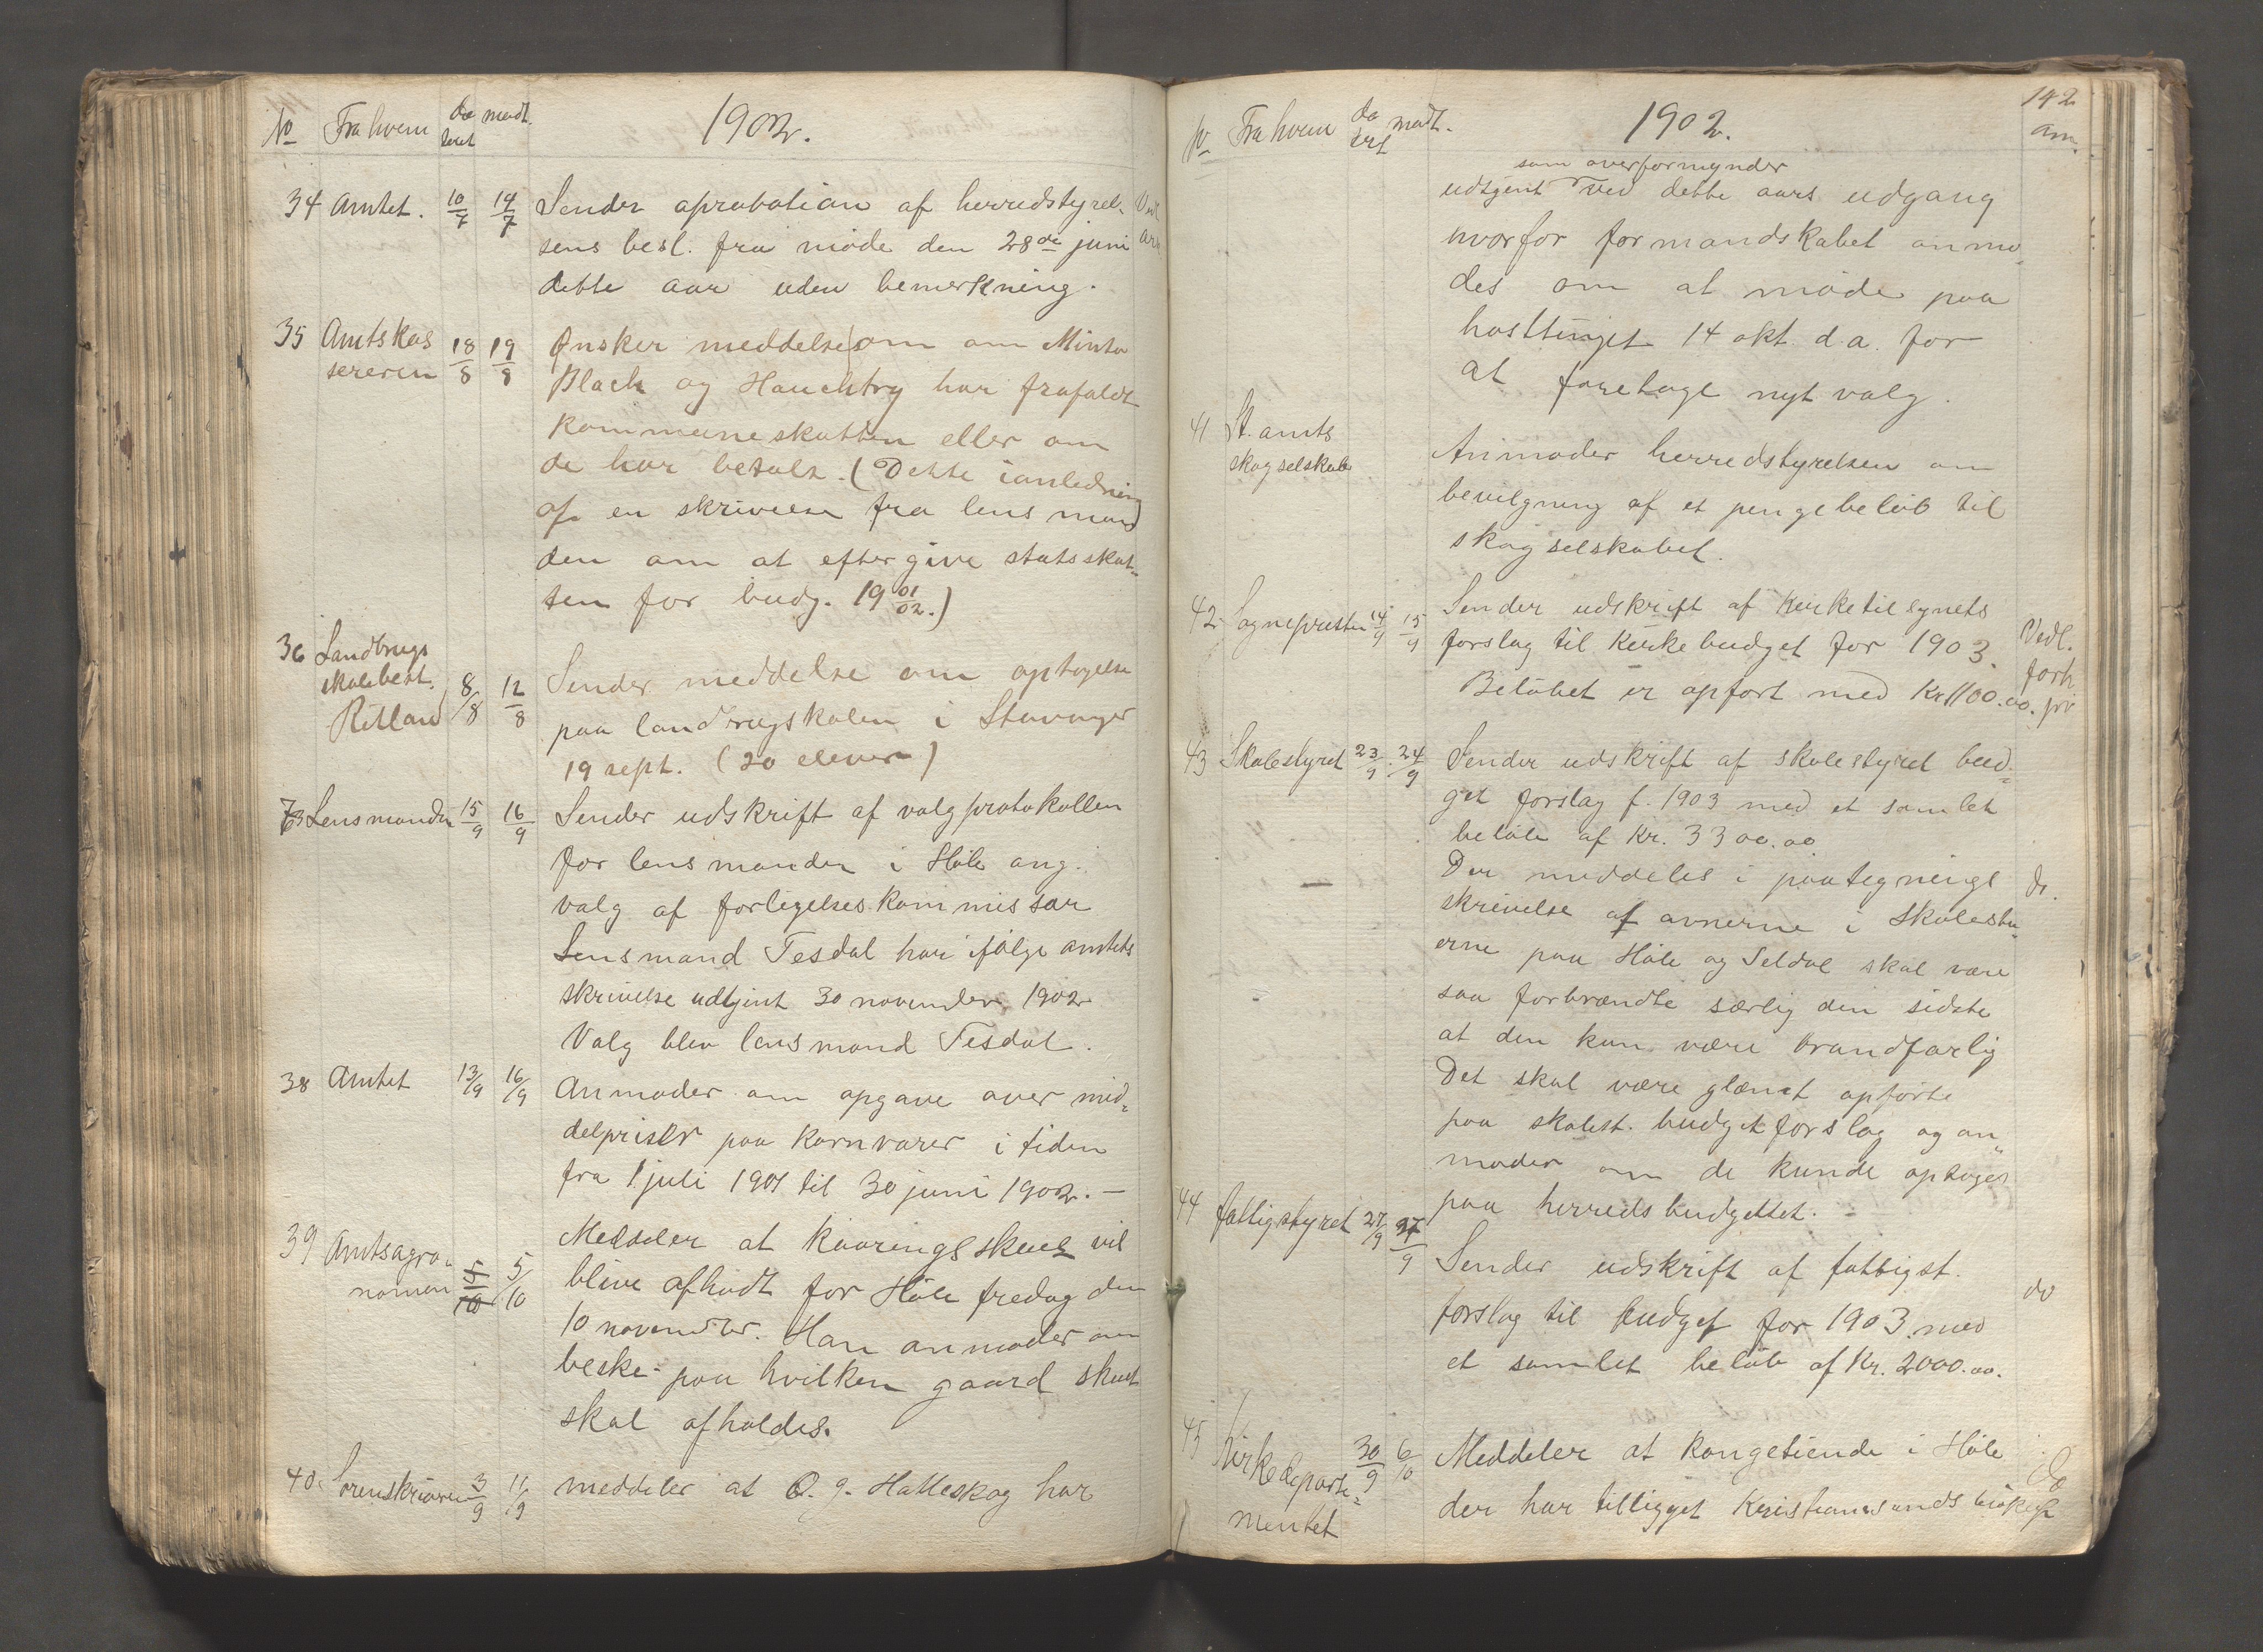 No Fra hvem da teret modt. 1902.
34 Amtet. 10/7 14/7 Sender aprobation af herredstyrel-
sens besl. fra møde den 28de juni
dette aar uden bemerkning.
35 Amtskas 18/8 19/8 Ønsker meddelse om om Minto
sereren Black og Hauchtry har frafaldt
kommuneskatten eller om
de har betalt. (Dette ianledning
af en skrivelse fra lensman
den om at eftergive statsskat-
ten for budg. 19 01/02.)
36 Landbrugs
skolebest. 8/8 12/8 Sender meddelse om optagelse
Ritland paa landbrugskolen i Stavanger
19 sept. (20 elever)
Lensmanden 15/9 16/9 Sender udskrift af valgprotokollen
for lensmanden i Høle ang.
valg af forligelseskommissær
Lensmand Tesdal har ifølge amtets
skrivelse udtjent 30 november 1902
Valg blev lensmand Tesdal.
38 Amtet 13/9 16/9 Anmoder om opgave over mid-
delpriser paa kornvarer i tiden
fra 1 juli 1901 til 30 juni 1902. —
39 Amtsagro- Meddeler at kaaringsskuet vil
nomen 5/10 5/10 blive afhodt for Høle fredag den
10 november. Han anmoder om
beske- paa hvilken gaard skuet
skal afholdes.
40. Sorenskriveren 3/9 11/9 meddeler at O. G. Hatleskog har
142
No Fra hvem da tert modt. 1902. Am.
som overformynder
udtjent ved dette aars udgang
hvorfor formandskabet anmo-
des om at møde paa
høsttinget 14 okt. d.a. for
at foretage nyt valg.
41 St. amts
skogselskab Anmoder herredstyrelsen om
bevilgning af et pengebeløb til
skogselskabet.
42 Sogneprusten 14/9 15/9 Sender udskrift af kirketilsynets
forslag til kirkebudget for 1903. Vedl.
Beløbet er opført med Kr. 1100.00. forh
43 Skolestyret 23/9 24/9 Sender udskrift af skolestyret bud-
get forslag f. 1903 med et samlet
beløb af Kr. 3300.00
Der meddeles i paategnings do.
skrivelse at ovnerne i skolestu-
erne paa Høle og Seldal skal være
saa forbrændte særlig den sidste
at den kan være brandfarlig
Det skal være glæmt opførte
paa skolest. budgetforslag og an-
moder om de kunde optages
paa herredsbudgettet.
44 fattigstyret 27/9 27/9 Sender udskrift af fattigst.
forslag til budget for 1903 med do
et samlet beløb af Kr. 2000.00.
45 Kirkedeparte- 30/9 6/10 Meddeler at kongetiende i Høle do
mentet der har tilligget Kristianssands biskop